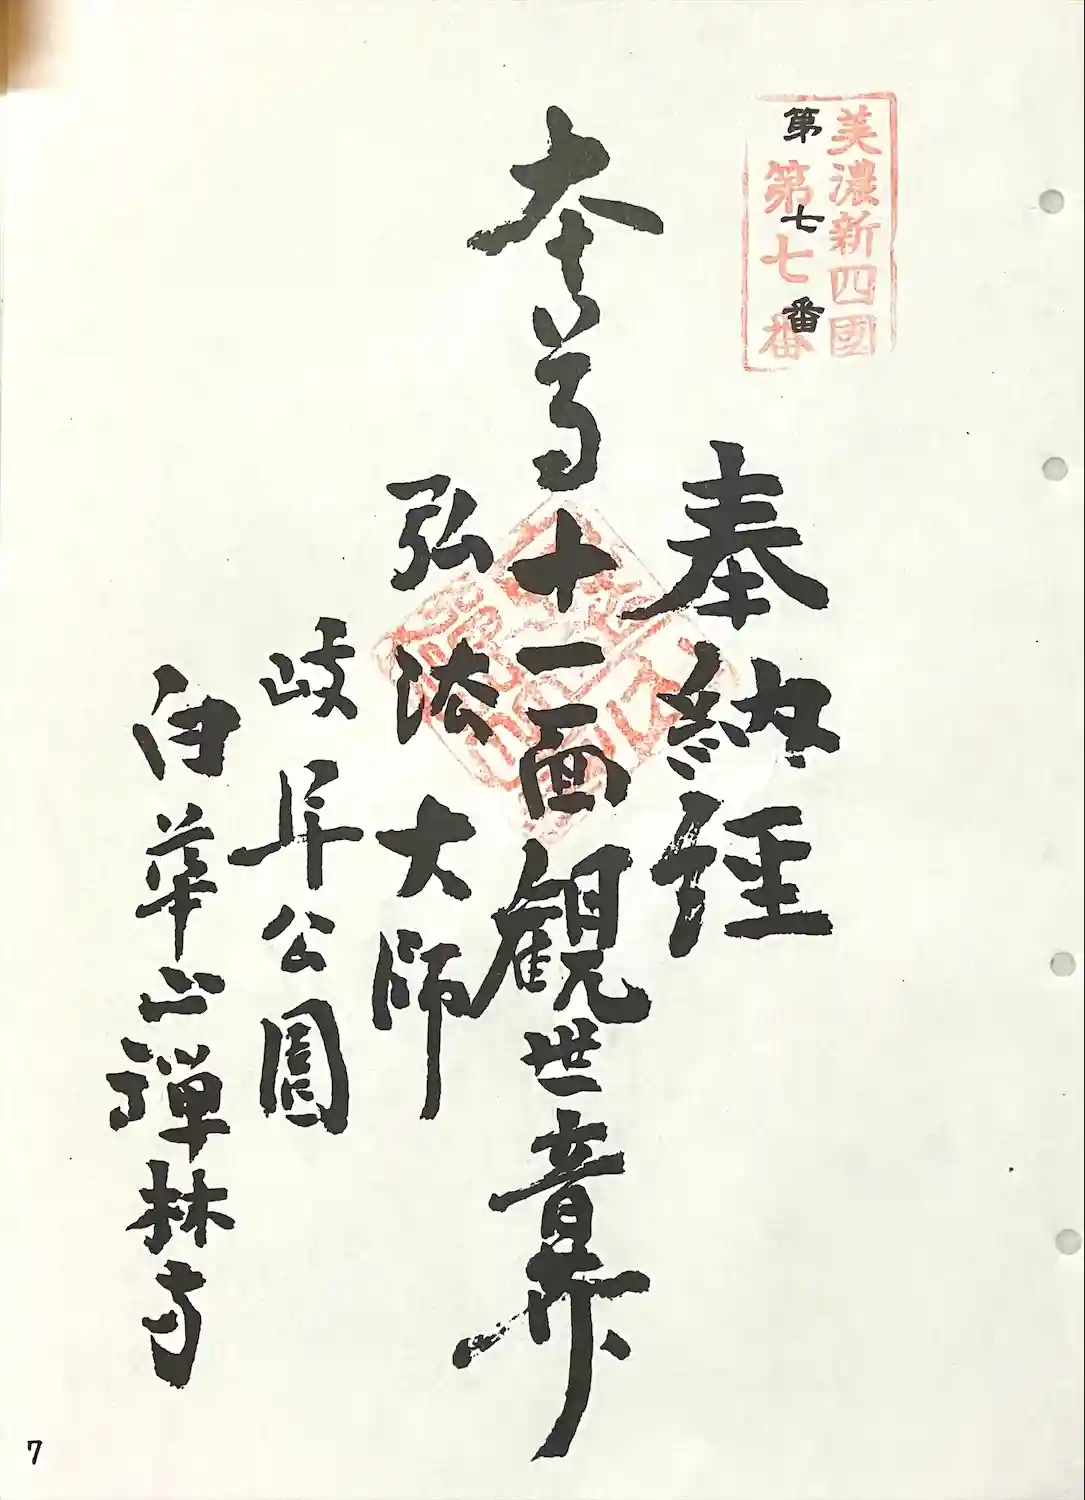 美濃新四國
第七番
第七番
奉納経
本尊十一面観世音菩薩
弘法大師
岐阜公園
白華山禅林寺
7